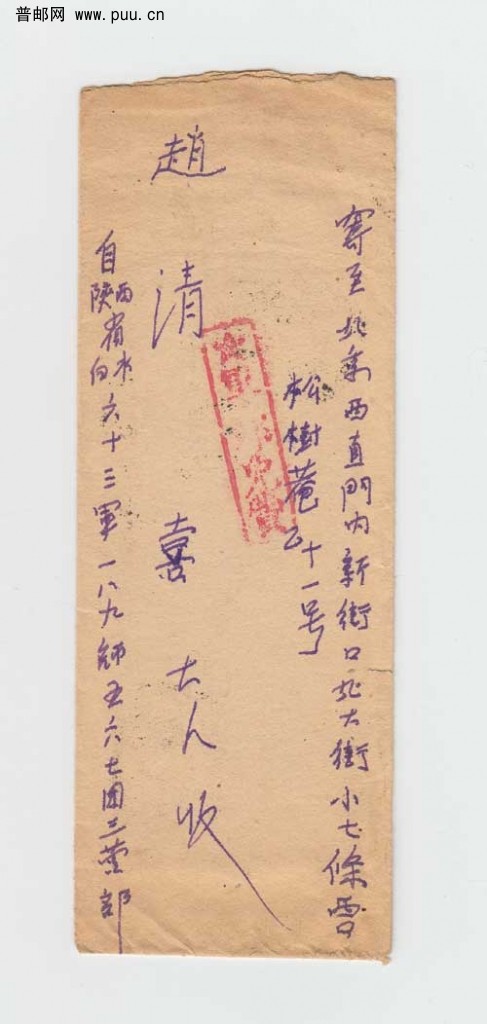 普邮网 www.puu.cn
寄至北京西直門内新街口北大街小七條西口
松樹菴二十一号
趙清喜大人收
自陝西省白水六十三軍一八九師五六七团三营部